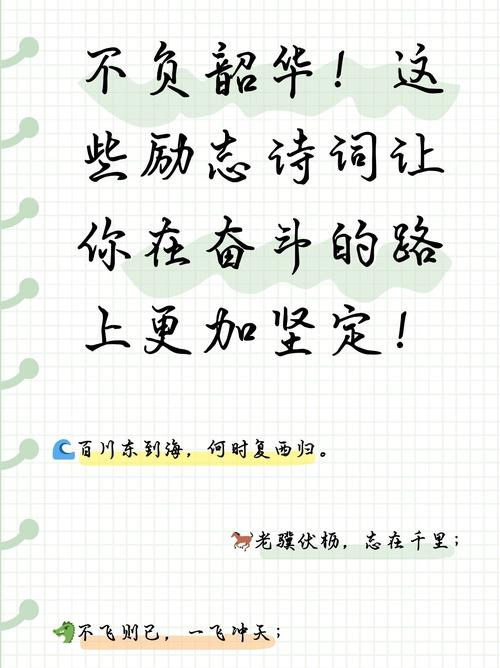 不负韶华！这
些励志诗词让
你在奋斗的路
上更加坚定！
百川东到海，何时复西归。
老骥伏枥，志在千里；
不飞则已，一飞冲天；